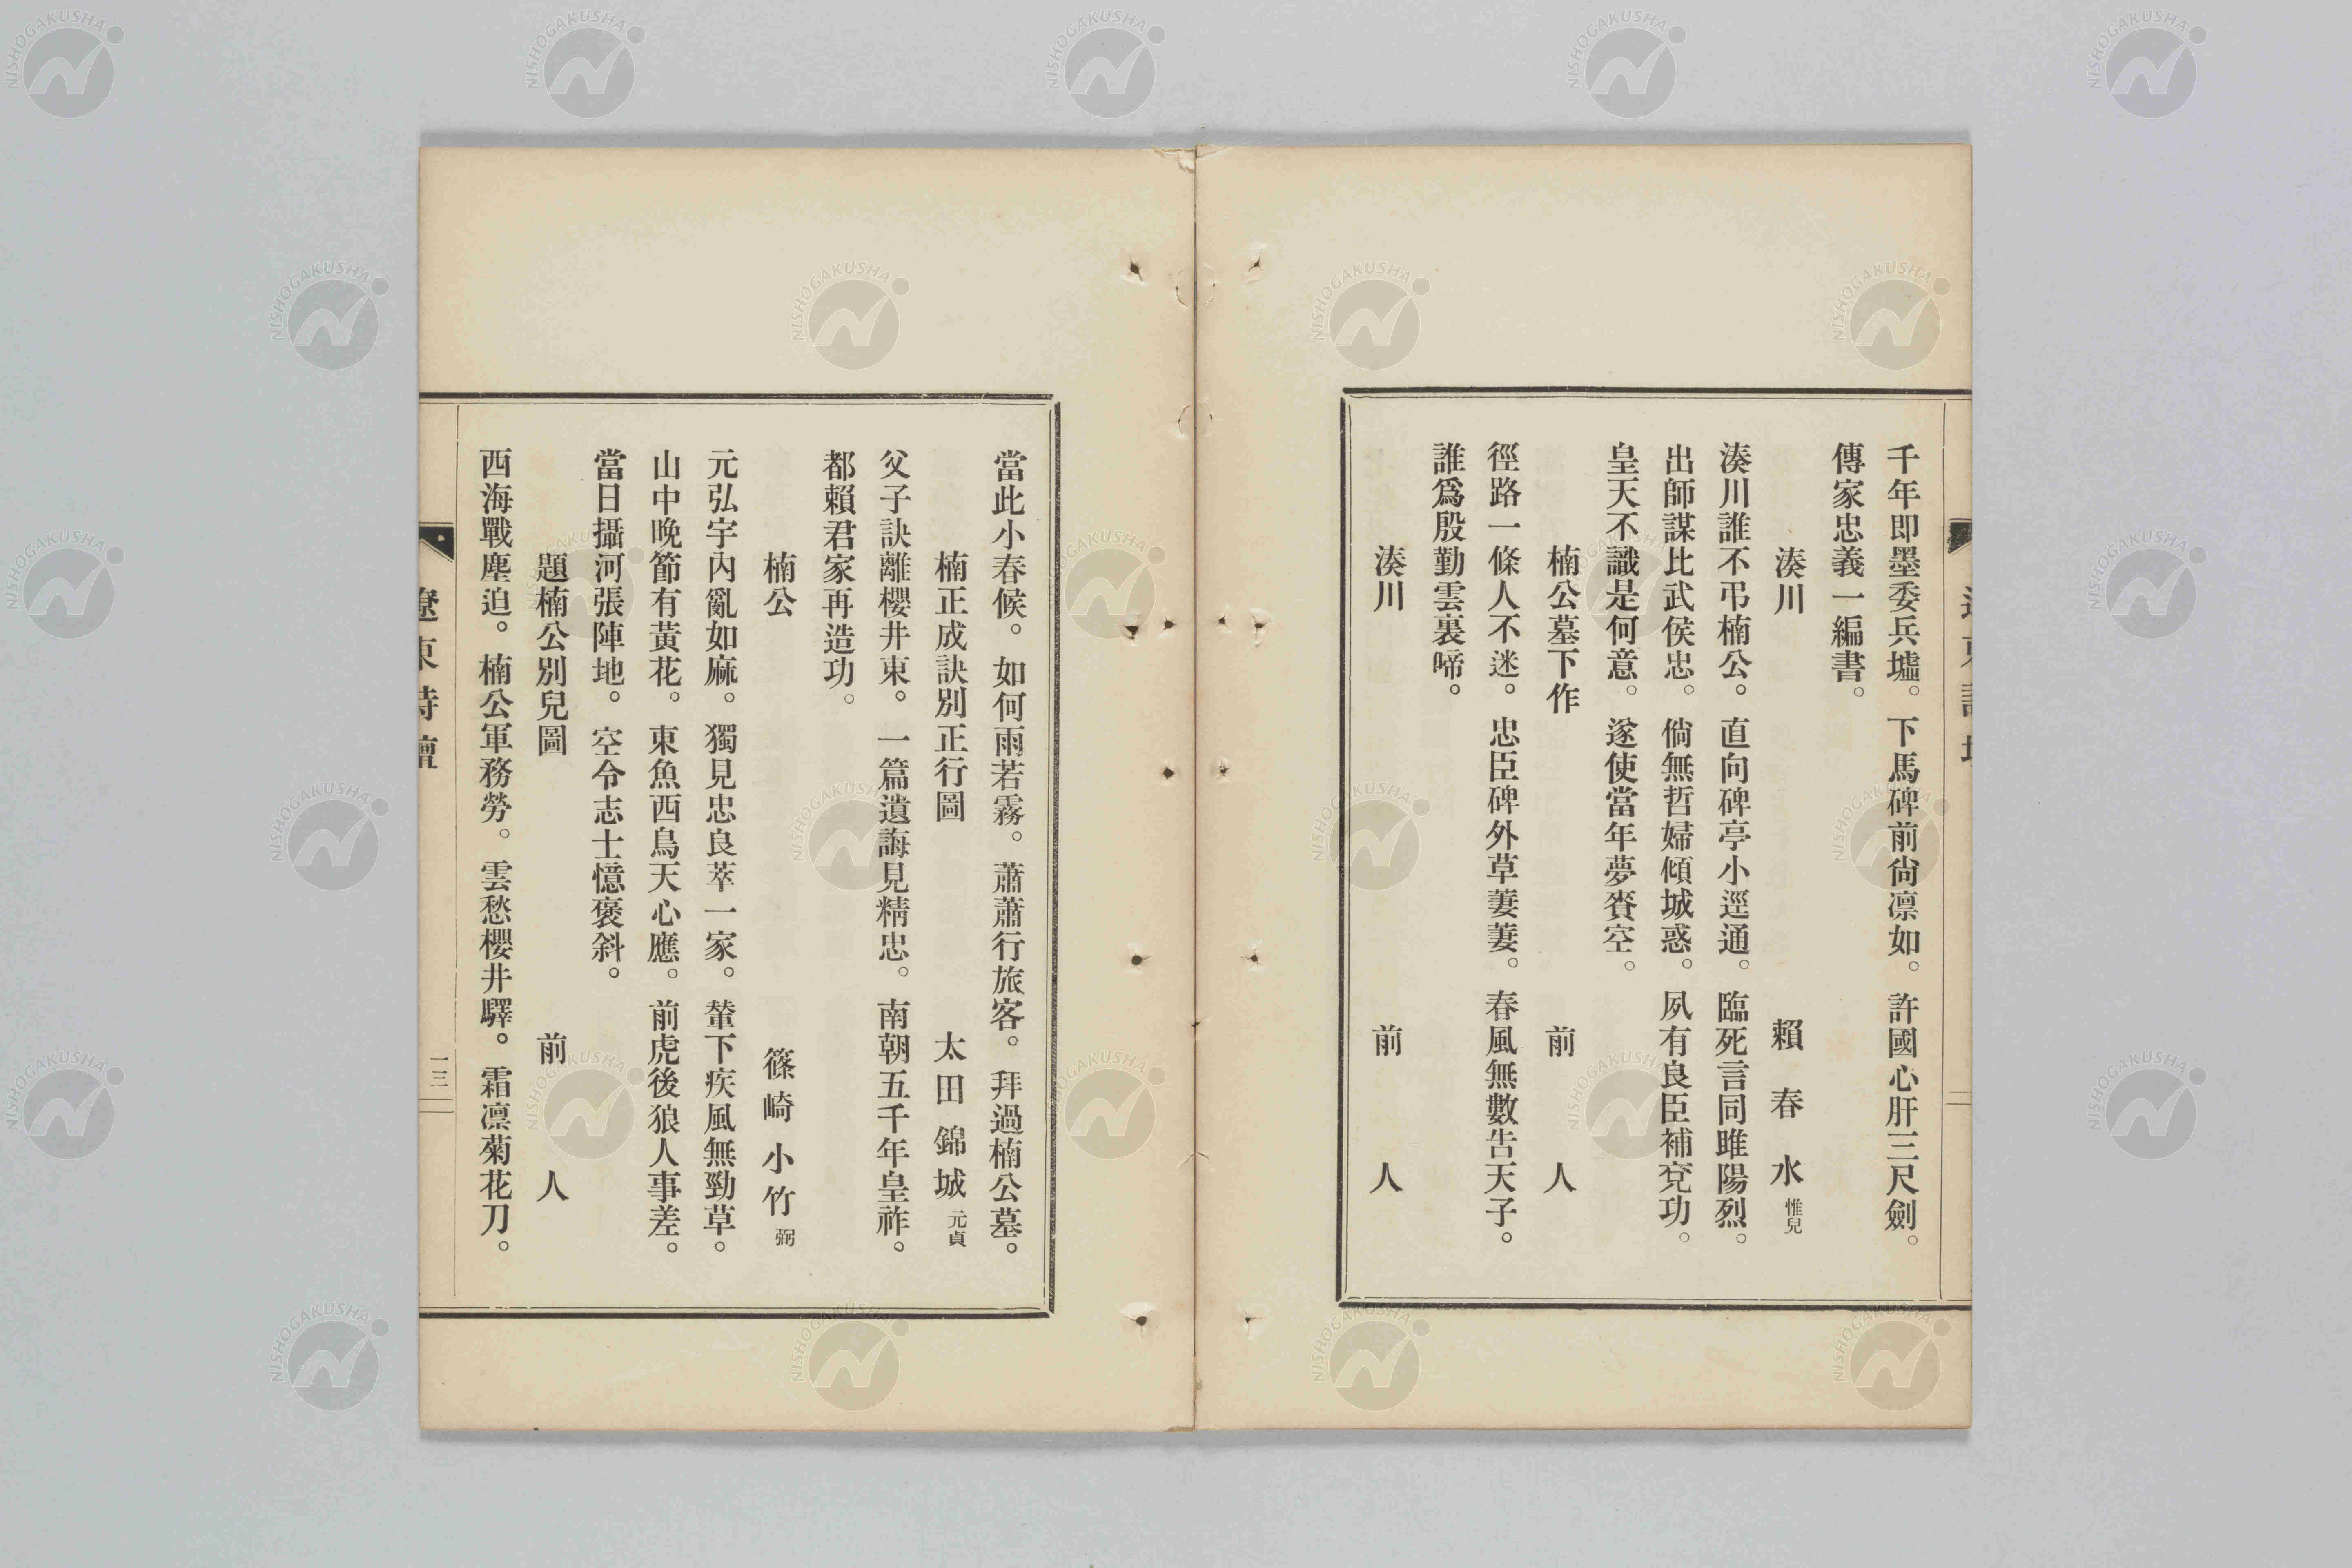 千年即墨委兵墟。下馬碑前尙凛如。許國心肝三尺劍。
傳家忠義一編書。
湊川 賴春水 惟兒
湊川誰不弔楠公。直向碑亭小逕通。臨死言同雎陽烈。
出師謀比武侯忠。倘無哲婦傾城惑。夙有良臣補兗功。
皇天不識是何意。遂使當年夢賚空。
楠公墓下作 前人
徑路一條人不迷。忠臣碑外草萋萋。春風無數告天子。
誰爲殷勤雲裏啼。
湊川 前人
當此小春候。如何雨若霧。蕭蕭行旅客。拜過楠公墓。
楠正成訣別正行圖 太田錦城 元貞
父子訣離櫻井東。一篇遺誨見精忠。南朝五千年皇祚。
都賴君家再造功。
楠公 篠崎小竹 弼
元弘宇內亂如麻。獨見忠良萃一家。輦下疾風無勁草。
山中晚節有黃花。東魚西鳥天心應。前虎後狼人事差。
當日攝河張陣地。空令志士憶褒斜。
題楠公別兒圖 前人
西海戰塵迫。楠公軍務勞。雲愁櫻井驛。霜凛菊花刀。
遼東詩壇
一三
NISHOGAKUSHA